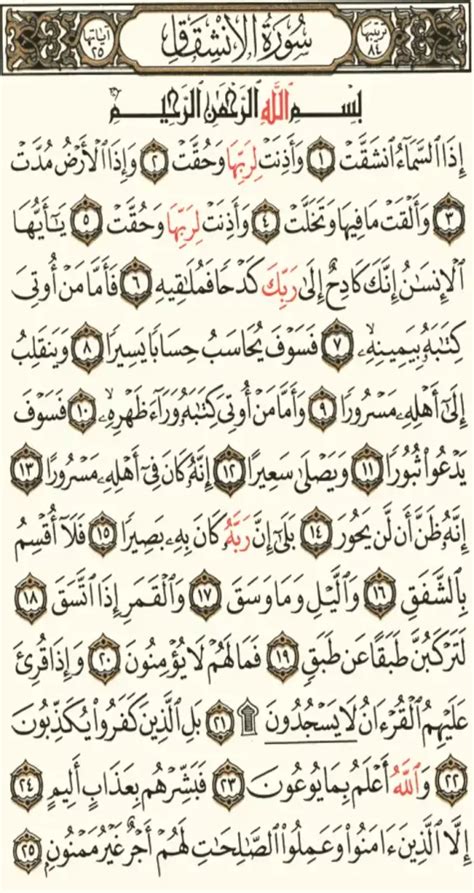 ترتيبها ٨٤ سُورَةُ الْانْشِقَاقِ آياتها ٢٥
بِسْمِ اللَّهِ الرَّحْمَٰنِ الرَّحِيمِ
إِذَا ٱلسَّمَآءُ ٱنشَقَّتْ ١ وَأَذِنَتْ لِرَبِّهَا وَحُقَّتْ ٢ وَإِذَا ٱلْأَرْضُ مُدَّتْ
٣ وَأَلْقَتْ مَا فِيهَا وَتَخَلَّتْ ٤ وَأَذِنَتْ لِرَبِّهَا وَحُقَّتْ ٥ يَٰٓأَيُّهَا
ٱلْإِنسَٰنُ إِنَّكَ كَادِحٌ إِلَىٰ رَبِّكَ كَدْحًا فَمُلَٰقِيهِ ٦ فَأَمَّا مَنْ أُوتِىَ
كِتَٰبَهُۥ بِيَمِينِهِۦ ٧ فَسَوْفَ يُحَاسَبُ حِسَابًا يَسِيرًا ٨ وَيَنقَلِبُ
إِلَىٰٓ أَهْلِهِۦ مَسْرُورًا ٩ وَأَمَّا مَنْ أُوتِىَ كِتَٰبَهُۥ وَرَآءَ ظَهْرِهِۦ ١٠ فَسَوْفَ
يَدْعُوا۟ ثُبُورًا ١١ وَيَصْلَىٰ سَعِيرًا ١٢ إِنَّهُۥ كَانَ فِىٓ أَهْلِهِۦ مَسْرُورًا ١٣
إِنَّهُۥ ظَنَّ أَن لَّن يَحُورَ ١٤ بَلَىٰٓ إِنَّ رَبَّهُۥ كَانَ بِهِۦ بَصِيرًا ١٥ فَلَآ أُقْسِمُ
بِٱلشَّفَقِ ١٦ وَٱلَّيْلِ وَمَا وَسَقَ ١٧ وَٱلْقَمَرِ إِذَا ٱتَّسَقَ ١٨
لَتَرْكَبُنَّ طَبَقًا عَن طَبَقٍ ١٩ فَمَا لَهُمْ لَا يُؤْمِنُونَ ٢٠ وَإِذَا قُرِئَ
عَلَيْهِمُ ٱلْقُرْءَانُ لَا يَسْجُدُونَ ۩ ٢١ بَلِ ٱلَّذِينَ كَفَرُوا۟ يُكَذِّبُونَ
٢٢ وَٱللَّهُ أَعْلَمُ بِمَا يُوعُونَ ٢٣ فَبَشِّرْهُم بِعَذَابٍ أَلِيمٍ ٢٤
إِلَّا ٱلَّذِينَ ءَامَنُوا۟ وَعَمِلُوا۟ ٱلصَّٰلِحَٰتِ لَهُمْ أَجْرٌ غَيْرُ مَمْنُونٍۭ ٢٥